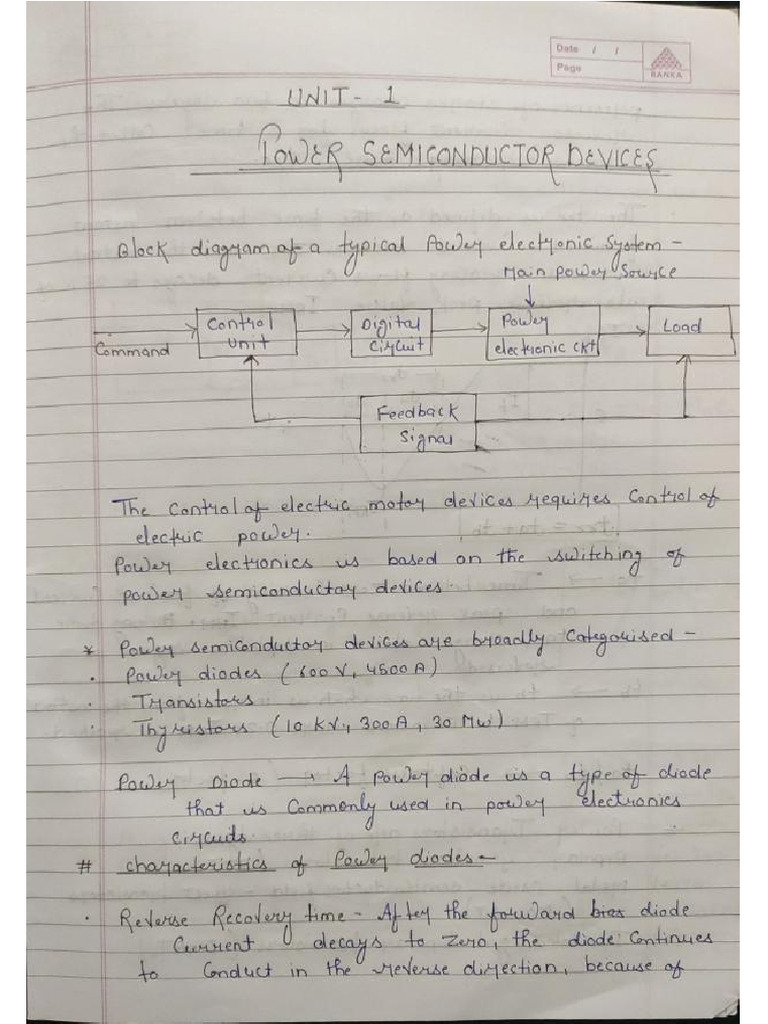 Date / /
Page
RANKA
UNIT - 1
POWER SEMICONDUCTOR DEVICES
Block diagram of a typical Power electronic System -
Main Power Source
Command
Control Unit
Digital Circuit
Power electronic Ckt
Load
Feedback Signal
The Control of electric motor devices requires Control of
electric power.
Power electronics is based on the switching of
power semiconductor devices.
* Power semiconductor devices are broadly Categorised -
. Power diodes (600 V, 4500 A)
. Transistors
. Thyristors (10 KV, 300 A, 30 Mw)
Power Diode → A power diode is a type of diode
that is Commonly used in power electronics
Circuits.
# Characteristics of Power diodes -
. Reverse Recovery time - After the forward bias diode
Current decays to Zero, the diode Continues
to Conduct in the reverse direction, because of